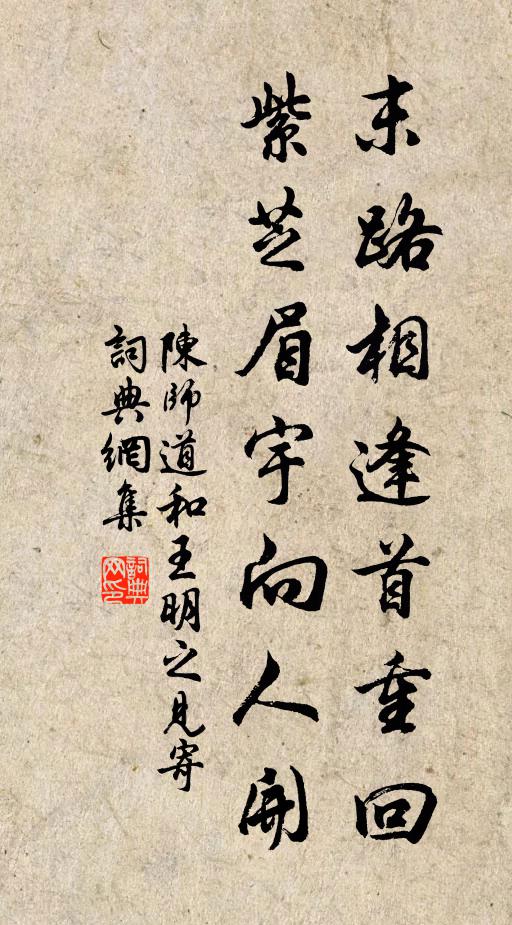 末路相逢首重回
紫芝眉宇向人開
陳師道和王明之見寄
詞典網集
詞典
网印